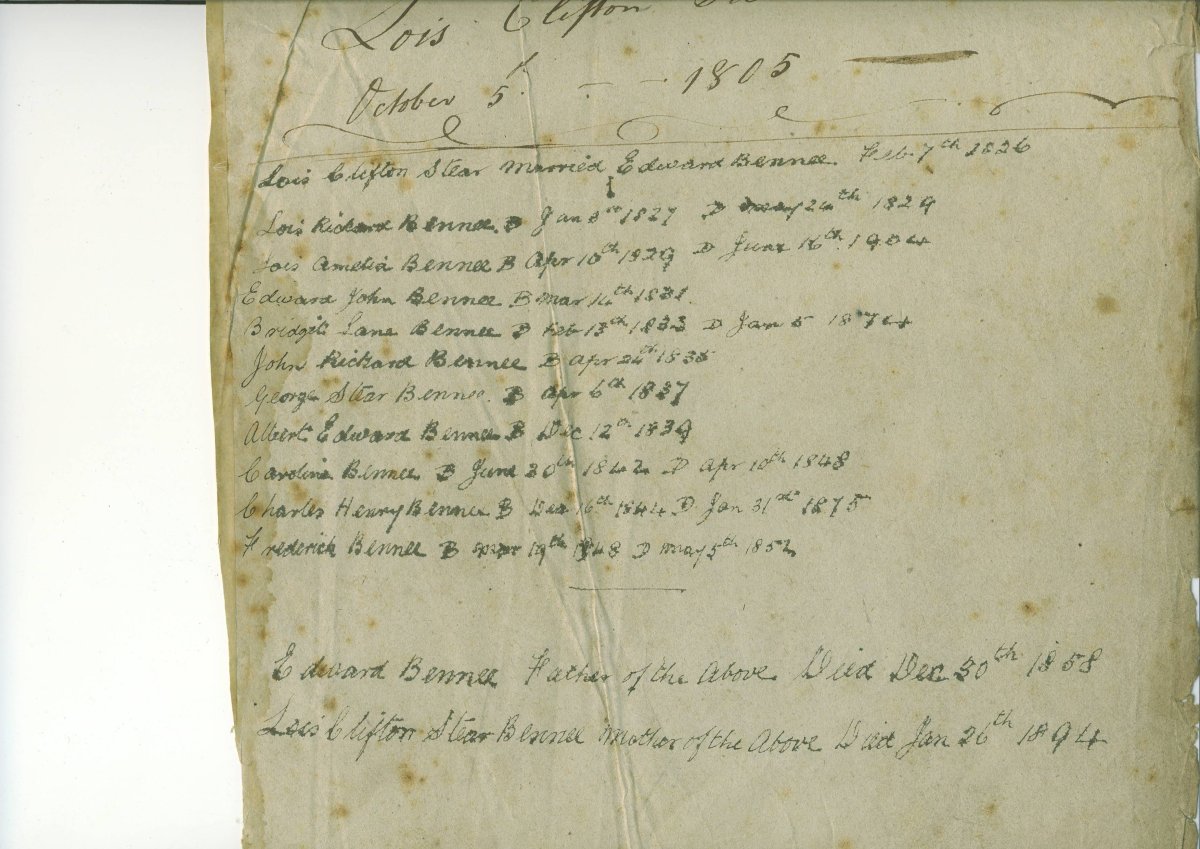 Lois Clifton
October 5th 1805
Lois Clifton Stear Married Edward Bennee Feb 7th 1826
Lois Richard Bennee B Jan 3rd 1827 D may 24th 1829
Lois Amelia Bennee B Apr 10th 1829 D June 16th 1904
Edward John Bennee B mar 14th 1831
Bridgit Lane Bennee B Feb 13th 1833 D Jan 5 1874
John Richard Bennee B Apr 24th 1835
George Stear Bennee B Apr 6th 1837
Albert Edward Bennee B Dec 12th 1839
Caroline Bennee B June 30th 1842 D Apr 10th 1848
Charles Henry Bennee B Dec 16th 1844 D Jan 31st 1875
Frederick Bennee B 19th 1848 D may 5th 1852
Edward Bennee Father of the Above Died Dec 30th 1858
Lois Clifton Stear Bennee mother of the Above Died Jan 26th 1894